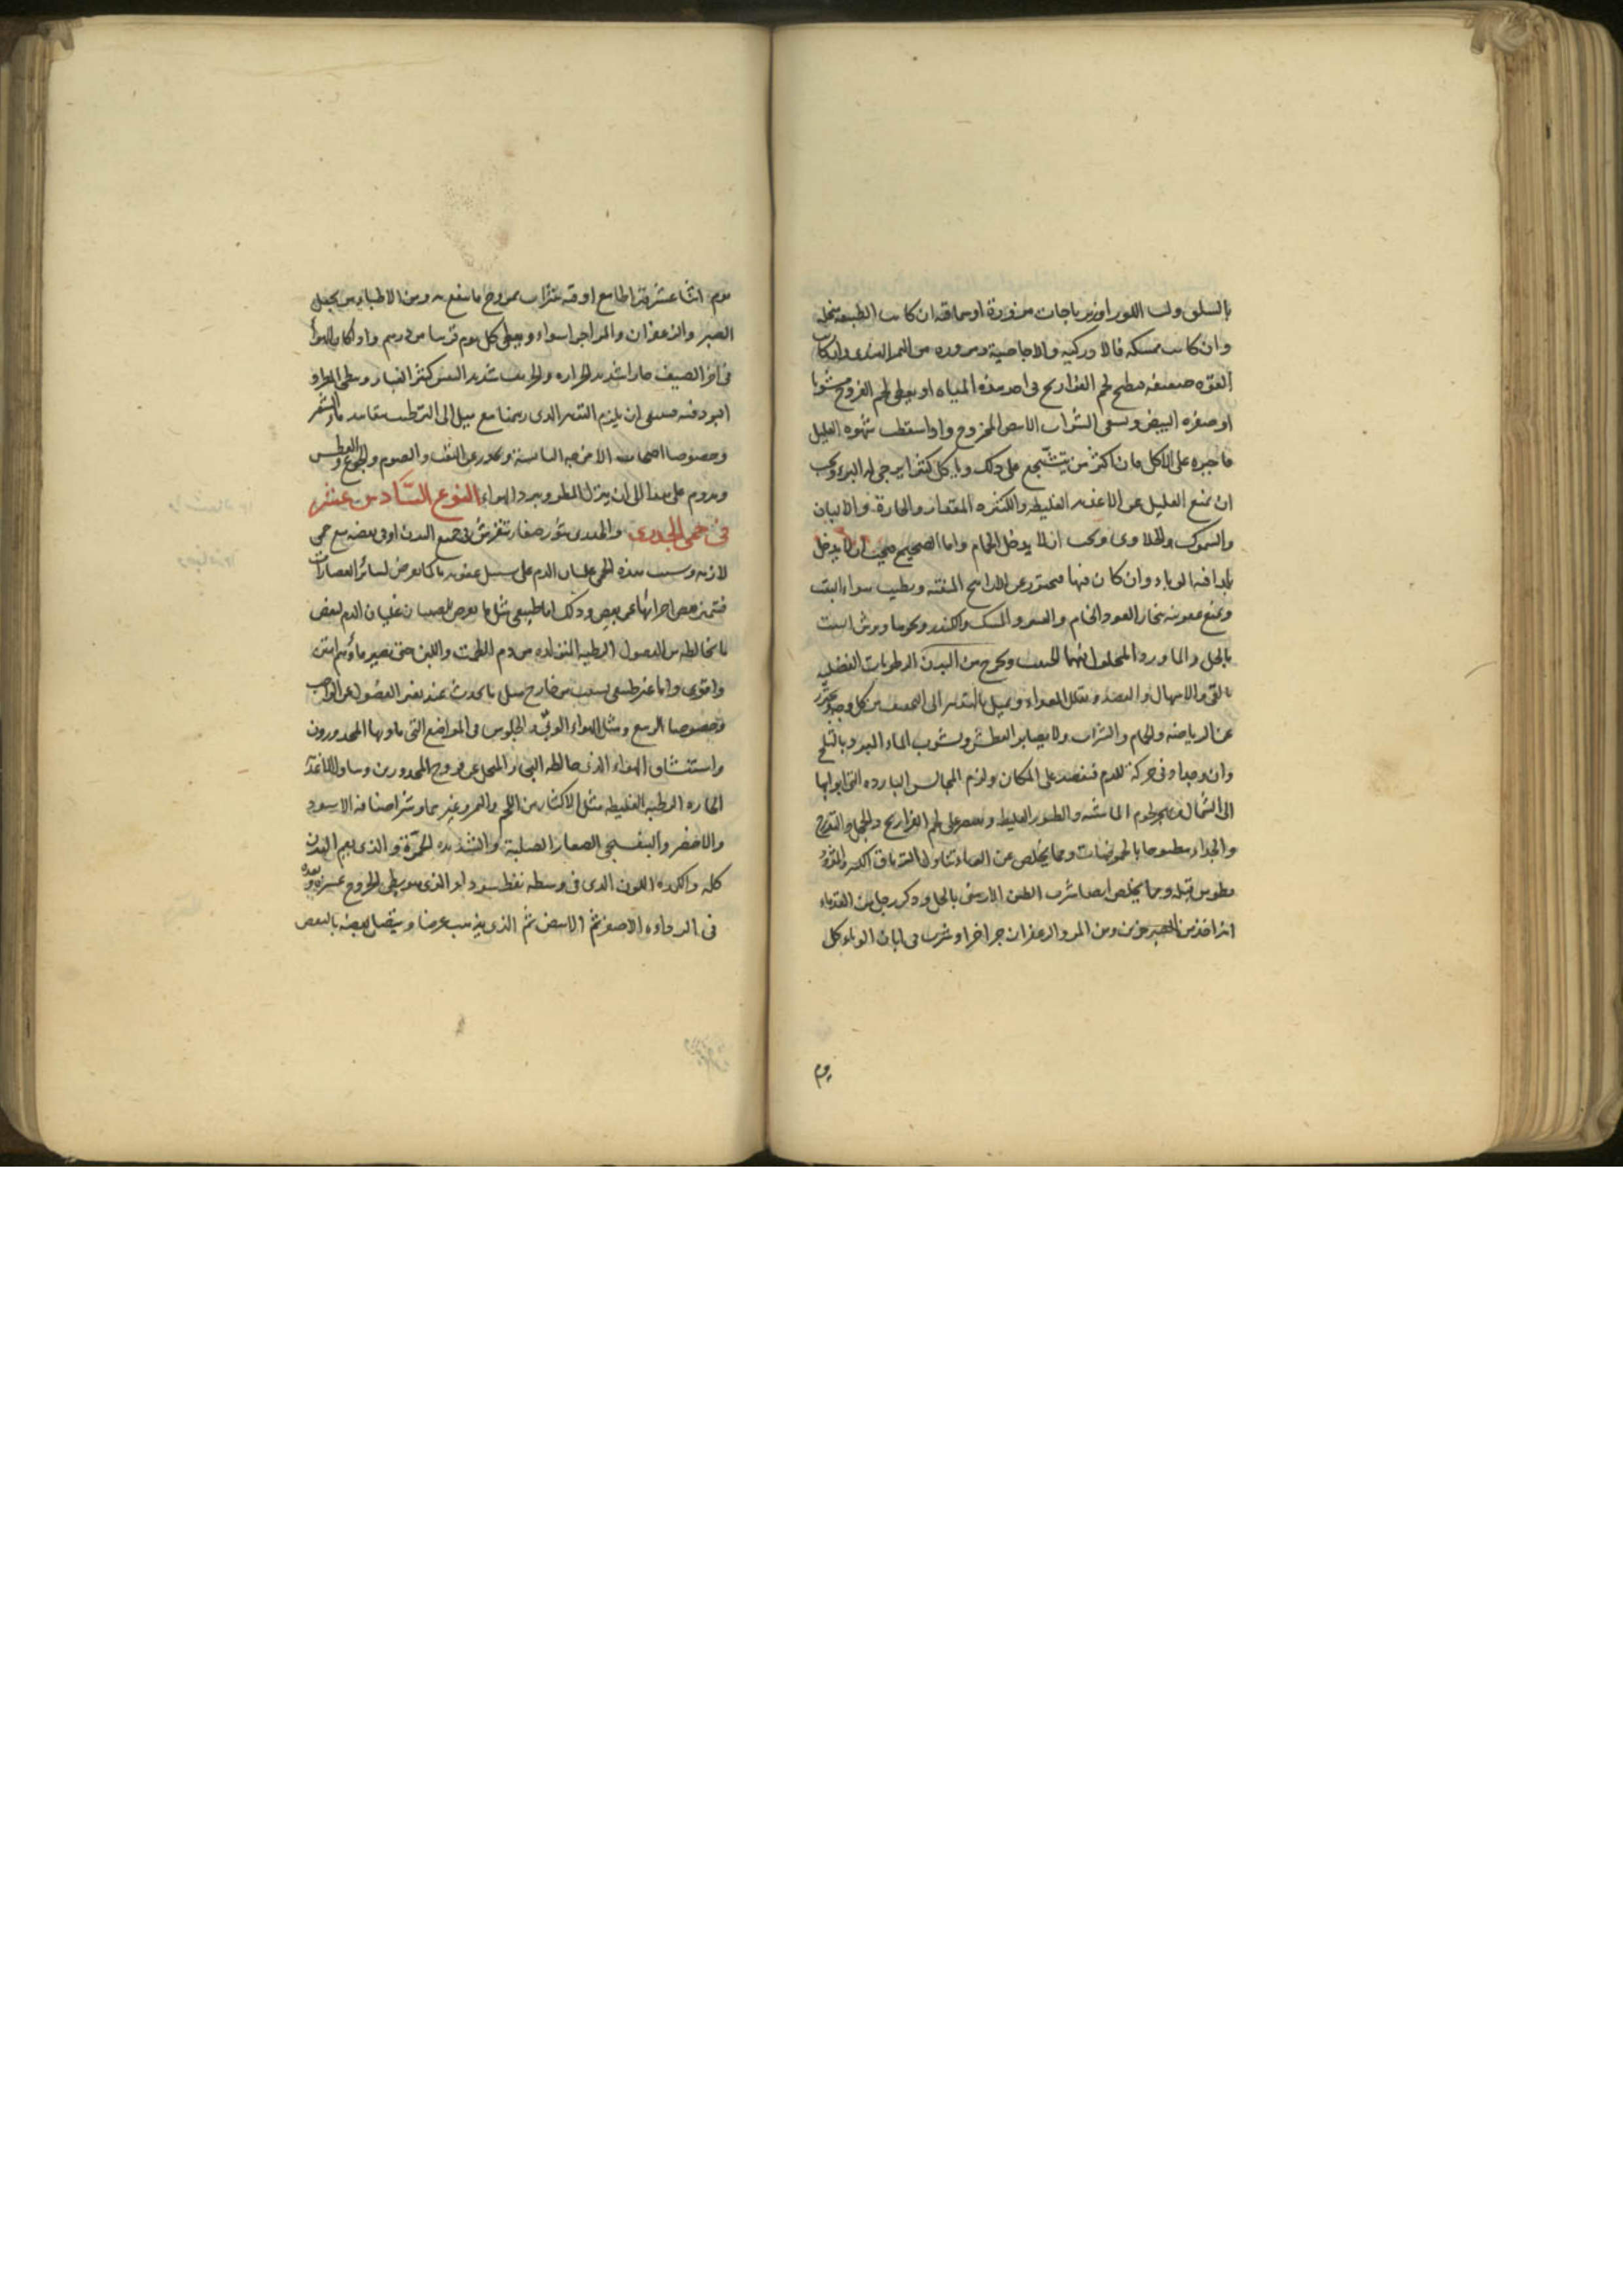 بالسلق ولب اللوز او زيرباجات مزورة او سماقية ان كانت الطبيعة منحلة
وان كانت ممسكة فالا والاجاصية ومزورة من التمر الهندى وان كانت
القوة ضعيفة فيطبخ لحم الفراريج فى احد هذه المياه او يعطى لحم الفروج مشويا
او صفرة البيض ويسقى الشراب الابيض الممزوج واذا سقطت شهوة العليل
فاجبره على الاكل فان اكثر من يتشجع على ذلك وياكل كثيرا يرجى له البرء ويجب
ان يمنع العليل عن الاغذية الغليظة والكثيرة المقدار والحارة والالبان
والسموك والحلاوى ويجب ان لا يدخل الحمام واما الصحيح فيجب ان لا يدخل
بلدا فيه الوباء وان كان فيها فيحترز عن الروايح المنتنة ويطيب هواء البيت
ويمنع عفونته ببخار العود الخام والعنبر والمسك والكندر ونحوها ويرش البيت
بالخل والماورد المحلول فيهما الحلتيت ويخرج من البدن الرطوبات الفضلية
بالقى والاسهال والفصد ويقلل الغذاء ويميل بالتدبير الى التجفيف من كل وجه ويحترز
عن الرياضة والحمام والشراب ولا يصابر العطش ويشوب الماء المبرد بالثلج
وان وجد ادنى حركة للدم فيفصد على المكان ولزم المجالس الباردة التى ابوابها
الى الشمال لحوم الماشية والطيور الغليظة ويقتصر على لحم الفراريج والحجل والتدرج
والجداء مطبوخا بالحموضات ومما يخلص عن الوباء تناول الترياق الكبير والمثرو
ديطوس قبله ومما يخلص ايضا شرب الطين الارمنى بالخل وذكر رجل من القدماء
انه اخذ من الصبر جزئين ومن المر والزعفران جزا جزا وشرب فى ابان الوباء كل
يوم
يوم اثنا عشر قيراطا مع اوقية شراب ممزوج فانتفع به ومن الاطباء من يجعل
الصبر والزعفران والمر اجزا سواء ويعطى كل يوم قريبا من درهم واذا كان الهواء
فى اخر الصيف حارا شديد الحرارة والخريف شديد اليبس كثير الغبار وبطى المطر او
فينبغى ان يلزم التدبير الذى رسمنا مع ميل الى الترطيب بماء الشعير
وخصوصا اصحاب الامزجة اليابسة ويحذر عن التعب والصوم والجوع والعطش
ويدوم على هذا الى ان ينزل المطر ويبرد الهواء النوع السادس عشر
فى حمى الجدرى والجدرى بثور صغار تنفرش فى جميع البدن او فى بعضه مع حمى
لازمة وسبب هذه الحمى غليان الدم على سبيل عفونة ما كما يعرض لسائر العصارات
فتميز بعض اجزائها عن بعض وذلك اما طبيعى مثل ما يعرض للصبيان غليان الدم لبعض
ما يخالطه من الفضول الرطبة المتولدة من دم الطمث واللبن حتى يصير ماؤهم امتن
واقوى واما غير طبيعى بسبب من خارج مثل ما يحدث عند تغير الفصول عن الواجب
وخصوصا الربيع ومثل الهواء الوبئ والجلوس فى المواضع التى ياويها المجدورون
واستنشاق الهواء الذى خالطه البخار المتحلل عن قروح المجدورين وتناول الاغذية
الحارة الرطبة الغليظة مثل الاكثار من اللحم والتمر وغيرهما وشر اصنافه الاسود
والاخضر والبنفسجى الصغار الصلبة والشديدة الحمرة والذى يعم البدن
كله والكدرة اللون الذى فى وسطه نقط سود او الذى هو بطى الخروج عسره وبعده
فى الرداءة الاصفر ثم الابيض ثم الذى يذهب عرضا ويتصل بعضه بالبعض